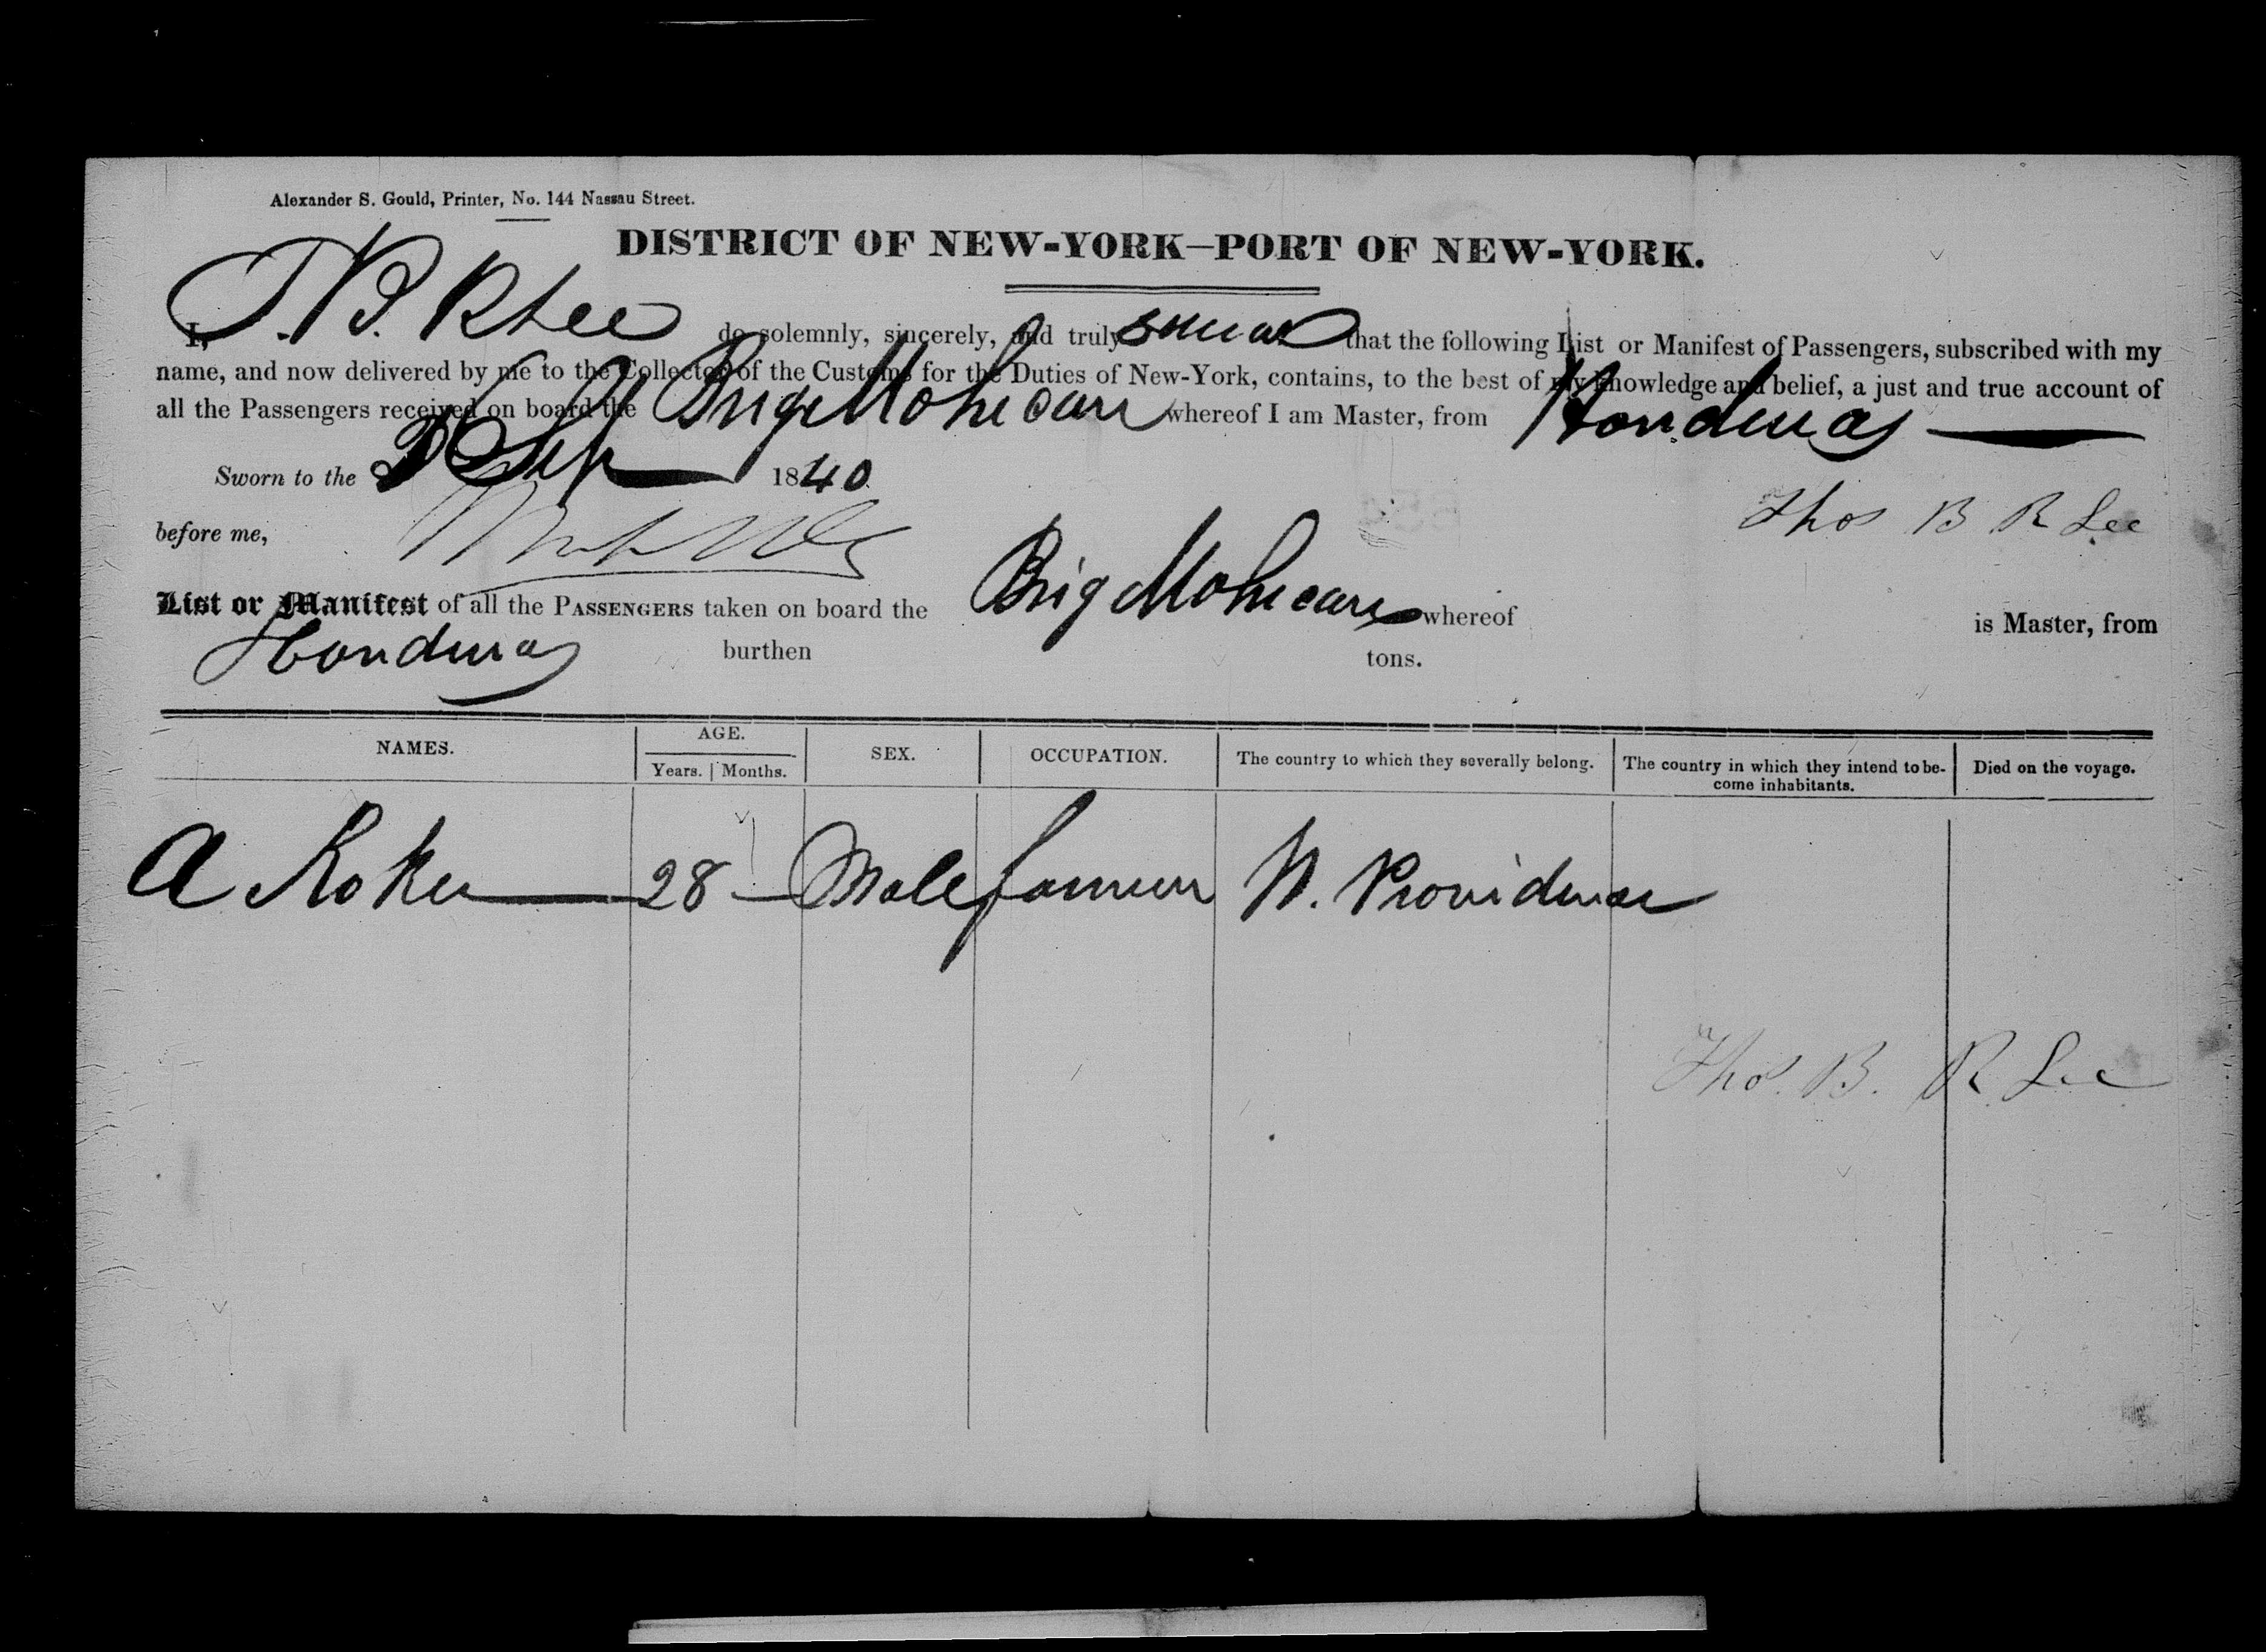 Alexander S. Gould, Printer, No. 144 Nassau Street.
DISTRICT OF NEW-YORK—PORT OF NEW-YORK.
I, T. B. R Lee do solemnly, sincerely, and truly swear that the following List or Manifest of Passengers, subscribed with my
name, and now delivered by me to the Collector of the Customs for the Duties of New-York, contains, to the best of my knowledge and belief, a just and true account of
all the Passengers received on board the Brig Mohecan whereof I am Master, from Honduras
Sworn to the Sep 1840
Thos B R Lee
before me,
List or Manifest of all the PASSENGERS taken on board the Brig Mohecan whereof is Master, from
Honduras burthen tons.
NAMES. AGE. SEX. OCCUPATION. The country to which they severally belong. The country in which they intend to be-come inhabitants. Died on the voyage.
Years. | Months.
A Roker 28 Male farmer N. Providence
Thos. B. R Lee